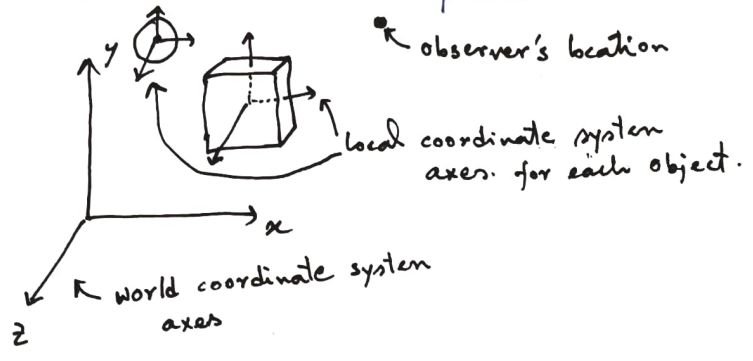 y
observer's location
local coordinate system
axes. for each object.
x
world coordinate system
axes
z